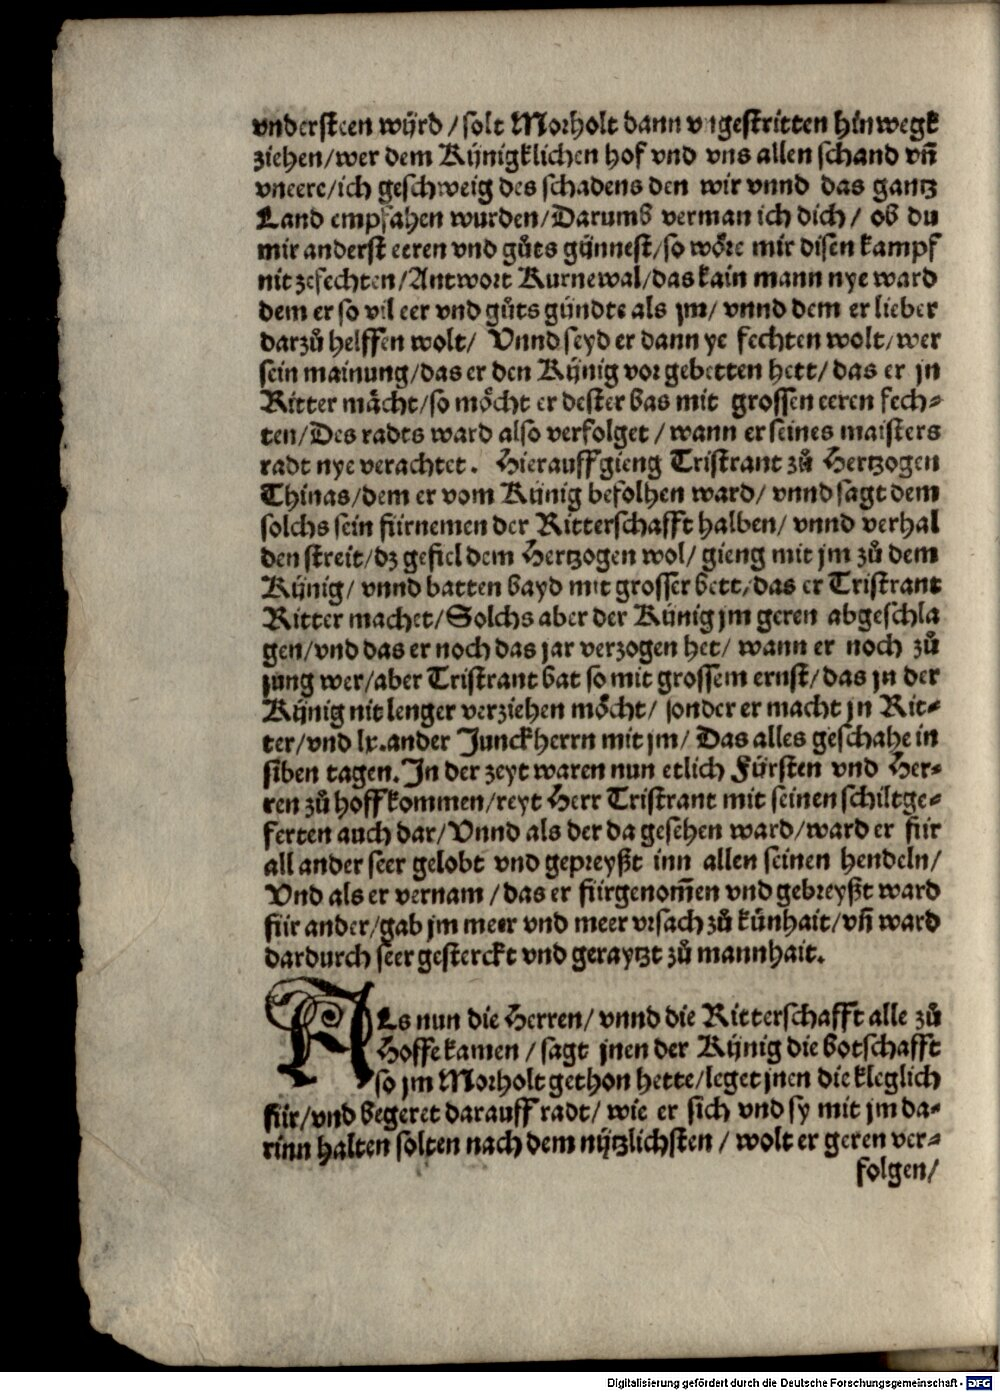 vndersteen wÿrd / solt Morholt dann vngestritten hinwegk
ziehen/wer dem Kÿnigklichen hof vnd vns allen schand vñ
vneere/ich geschweig des schadens den wir vnnd das gantz
Land empfahen wurden/Darumb verman ich dich / ob du
mir anderst eeren vnd gůts gÿnnest/so wőre mir disen kampf
nit zefechten/Antwort Kurnewal/das kain mann nye ward
dem er so vil eer vnd gůts gündte als jm/ vnnd dem er lieber
darzů helffen wolt/ Vnnd seyd er dann ye fechten wolt/wer
sein mainung/das er den Kÿnig vor gebetten hett/das er jn
Ritter mächt/so möcht er dester bas mit grossen eeren fech⸗
ten/Des radts ward also verfolget / wann er seines maisters
radt nye verachtet. Hierauff gieng Tristrant zů Hertzogen
Thinas/dem er vom Kÿnig befolhen ward/ vnnd sagt dem
solchs sein fürnemen der Ritterschafft halben/ vnnd verhal
den streit/dz gefiel dem Hertzogen wol/ gieng mit jm zů dem
Kÿnig/ vnnd batten bayd mit grosser bett/das er Tristrant
Ritter machet/Solchs aber der Kÿnig jm geren abgeschla
gen/vnd das er noch das jar verzogen het/ wann er noch zů
jung wer/aber Tristrant bat so mit grossem ernst/das jn der
Kÿnig nit lenger verziehen möcht/ sonder er macht jn Rit⸗
ter/vnd lx.ander Junckherrn mit jm/ Das alles geschahe in
siben tagen. In der zeyt waren nun etlich Fürsten vnd Her⸗
ren zů hoff kommen/reyt Herr Tristrant mit seinen schiltge⸗
ferten auch dar/Vnnd als der da gesehen ward/ward er für
all ander seer gelobt vnd gepreyßt inn allen seinen hendeln/
Vnd als er vernam / das er fürgenom̃en vnd gebreyßt ward
für ander/gab jm meer vnd meer vrsach zů künhait/vñ ward
dardurch seer gesterckt vnd geraytzt zů mannhait.
ALs nun die Herren/ vnnd die Ritterschafft alle zů
Hoffe kamen / sagt jnen der Kÿnig die botschafft
so jm Morholt gethon hette/leget jnen die kleglich
für/vnd begeret darauff radt/ wie er sich vnd sy mit jm da⸗
rinn halten solten nach dem nÿtzlichsten / wolt er geren ver⸗
folgen/
Digitalisierung gefördert durch die Deutsche Forschungsgemeinschaft - DFG